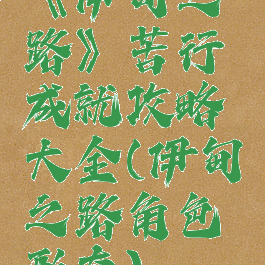 《伊甸之
路》苦行
成就攻略
大全(伊甸
之路角色